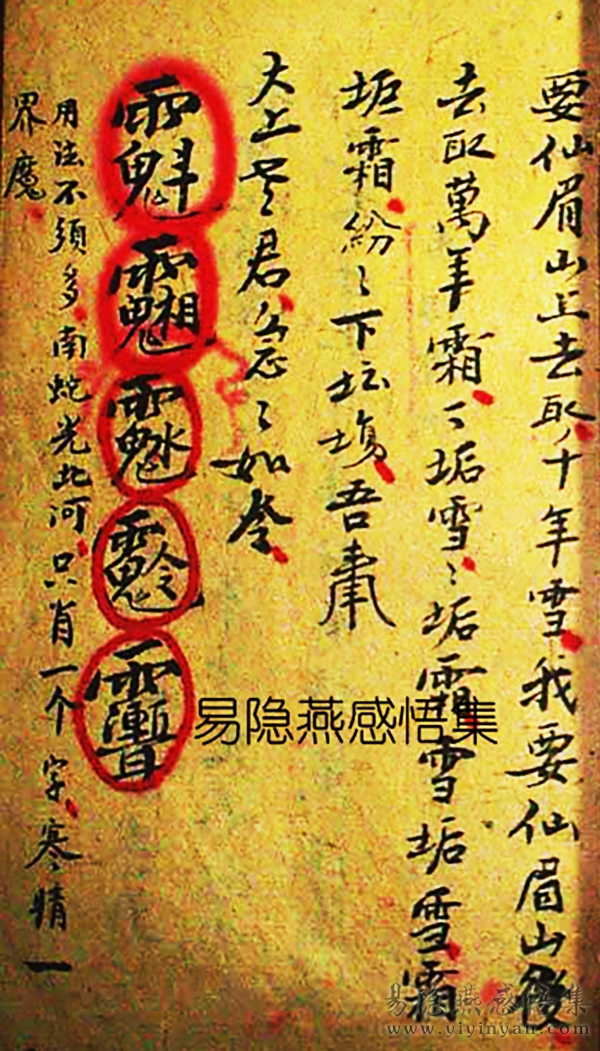 要仙眉山上去取十年雪我要仙眉山後
去取萬年霜〻垢雪〻垢霜雪垢雪霜
垢霜紛〻下坛場吾奉
太上老君急〻如令
用法不須多南蛇光北河只肖一个字寒情一
界魔
易隐燕感悟集
易隐燕感悟集
www.yiyinyan.com